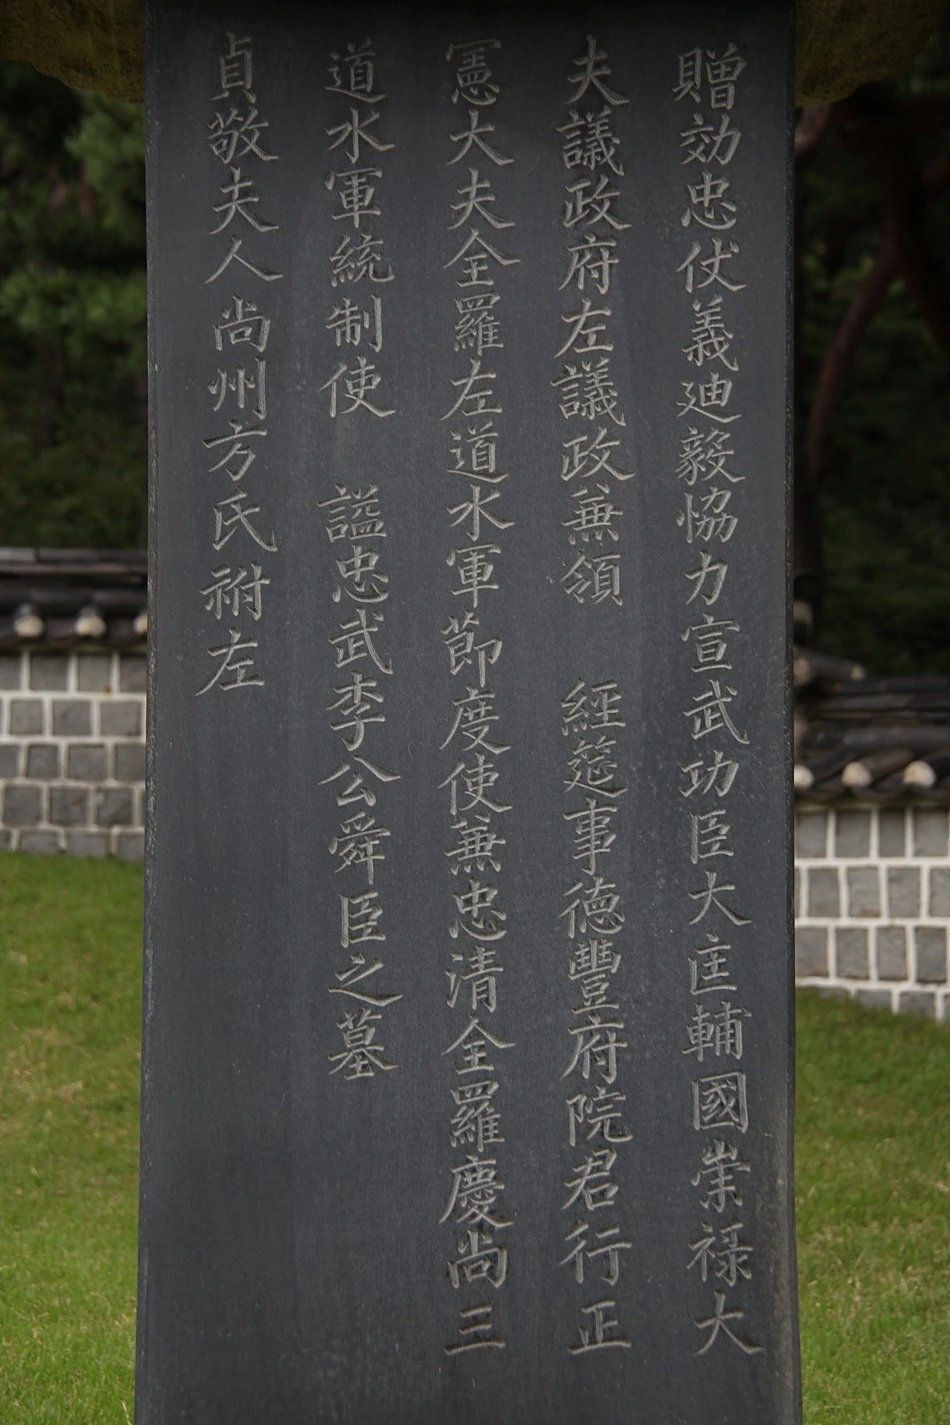 贈効忠仗義迪毅協力宣武功臣大匡輔國崇祿大
夫議政府左議政兼領 經筵事德豐府院君行正
憲大夫全羅左道水軍節度使兼忠清全羅慶尚三
道水軍統制使 謚忠武李公舜臣之墓
貞敬夫人尚州方氏祔左